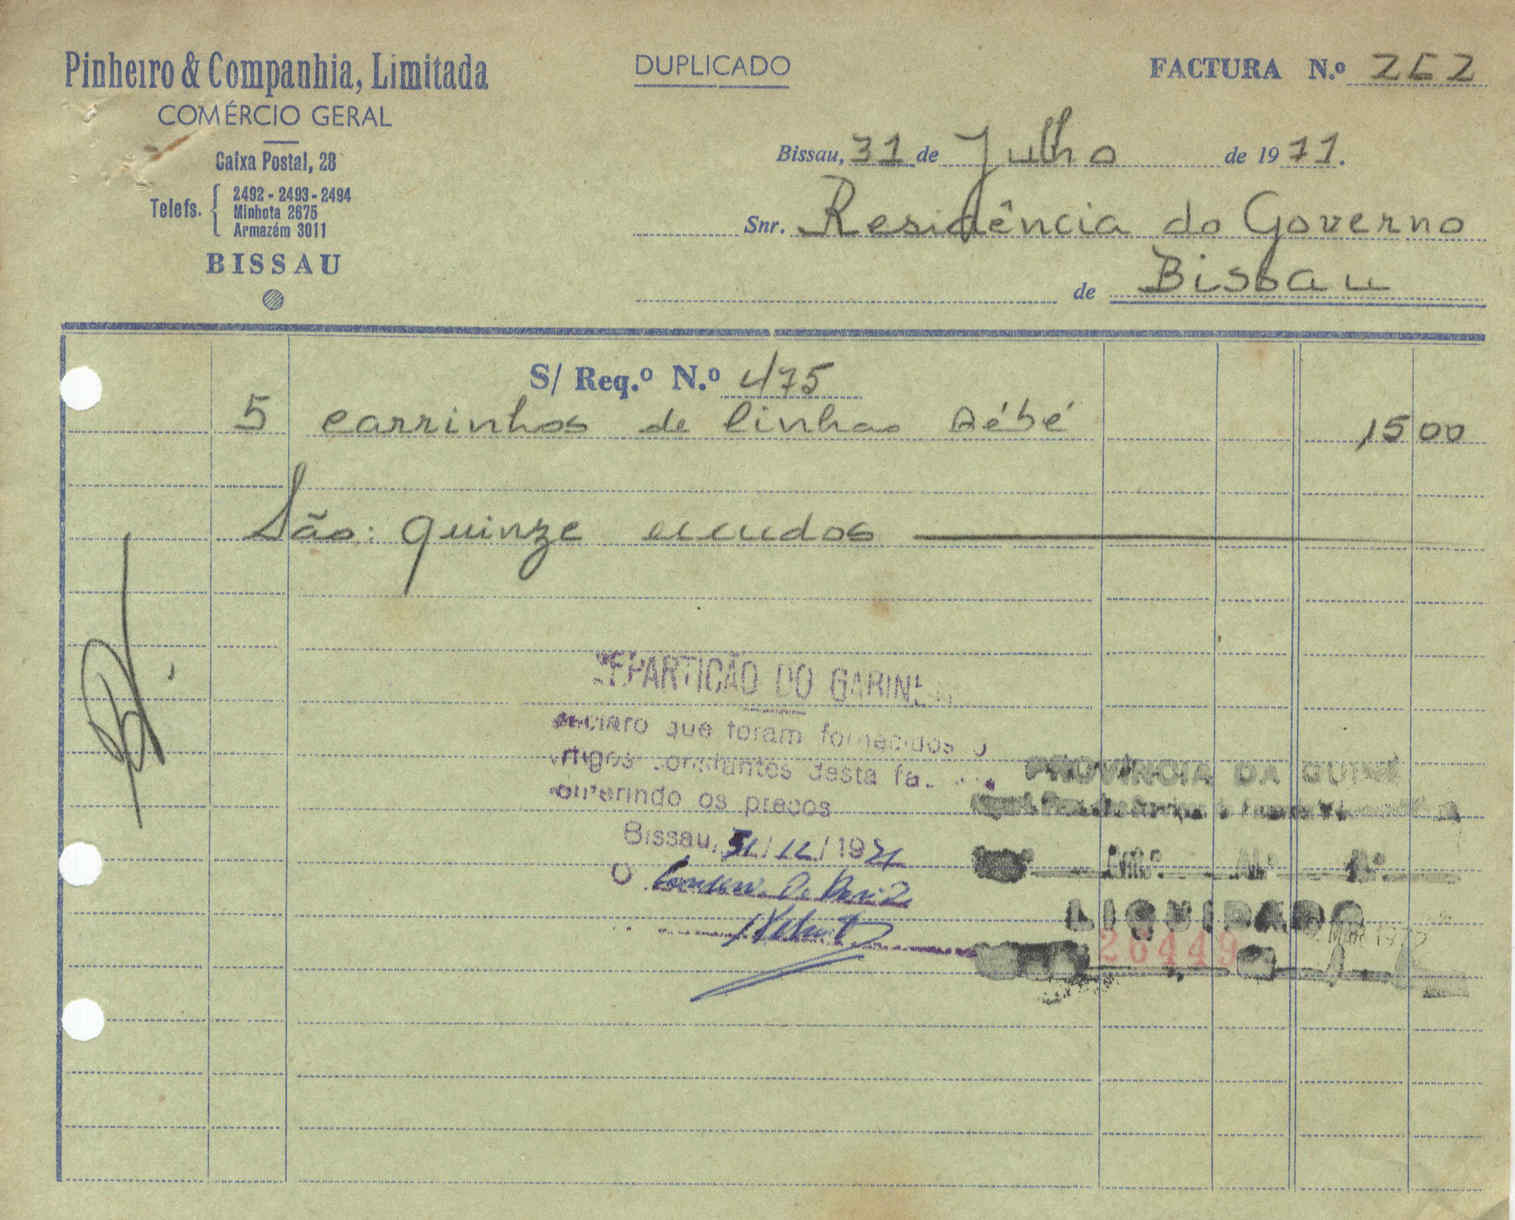 Pinheiro & Companhia, Limitada
COMÉRCIO GERAL
Caixa Postal, 28
Telefs. 2492 - 2493 - 2494
Minhota 2675
Armazém 3011
BISSAU
DUPLICADO
FACTURA N.º 262
Bissau, 31 de Julho de 1971.
Snr. Residência do Governo
de Bissau
S/ Req.º N.º 475
5 carrinhos de linhas Bébé 15 00
São: quinze escudos
REPARTIÇÃO DO GABINE
que foram fornecidos
artigos constantes desta fa
os preços
Bissau, 31/12/1971
O
PROVÍNCIA DA GUINÉ
LIQUIDADO
26449